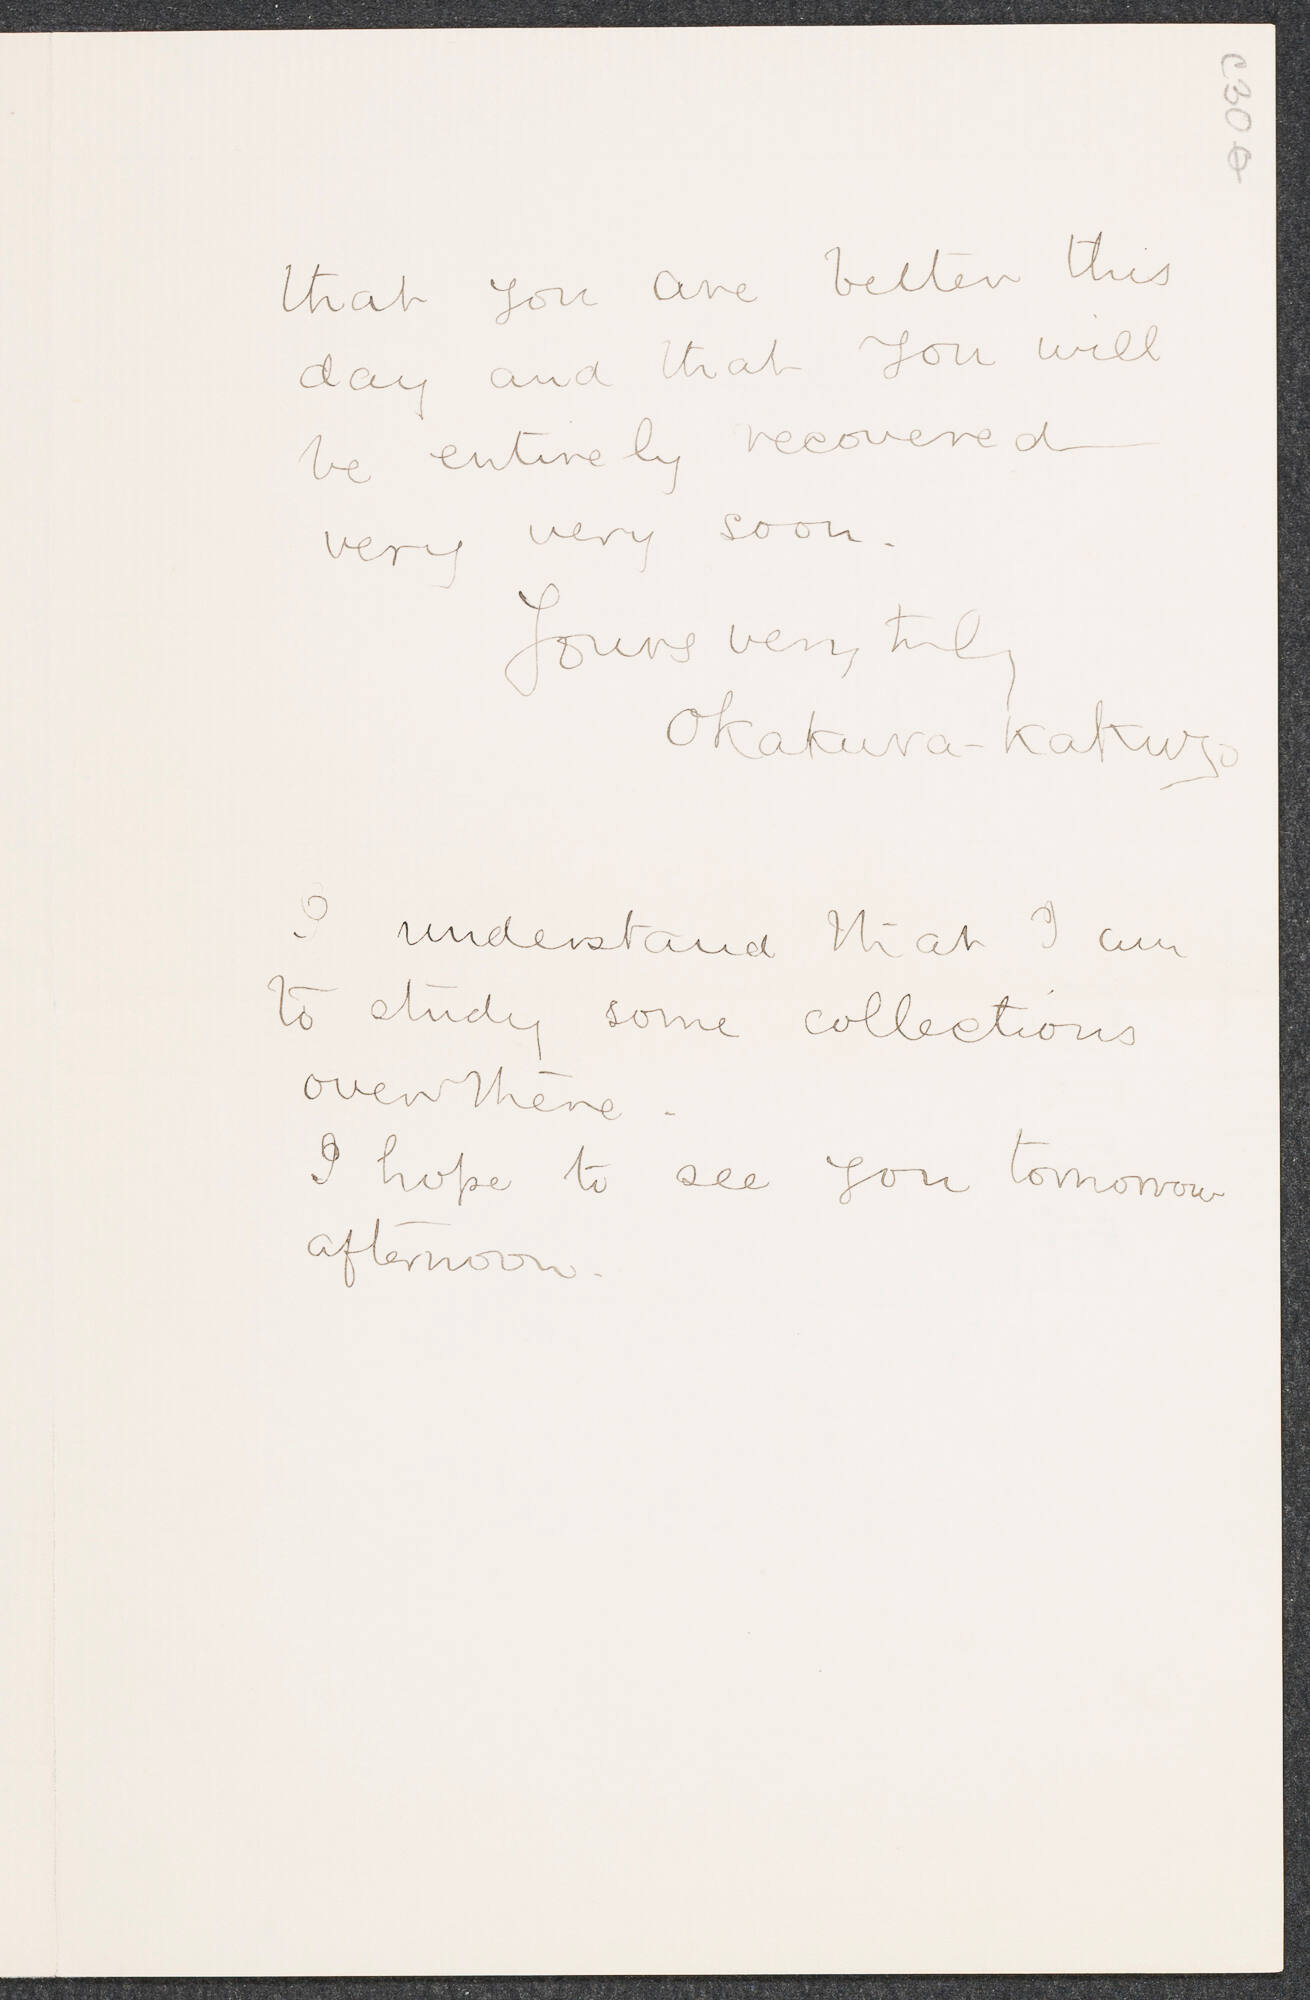 C30
that you are better this
day and that you will
be entirely recovered
very very soon.
Yours very truly
Okakura-Kakuzo
I understand that I am
to study some collections
over there.
I hope to see you tomorrow
afternoon.